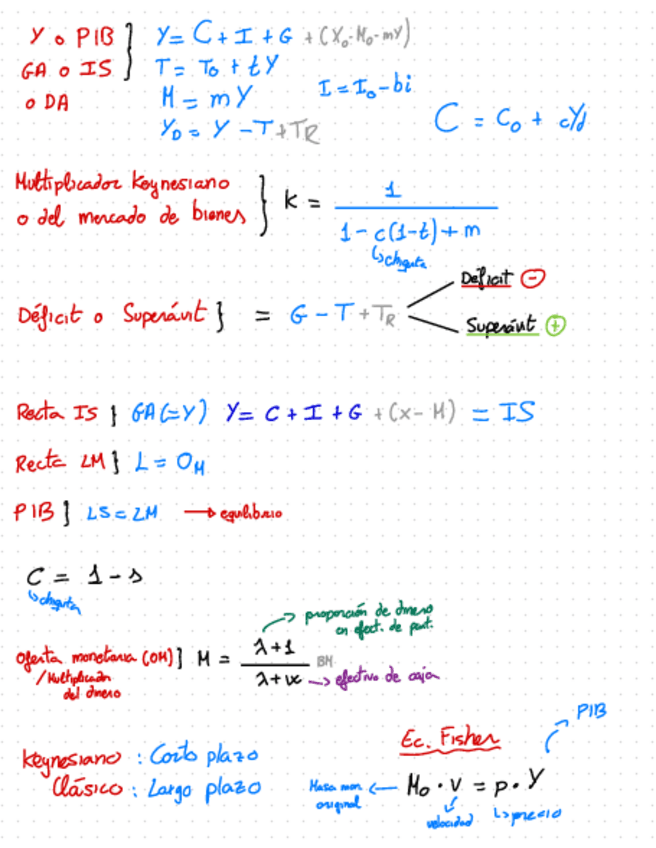 Y o PIB } Y = C + I + G + (X₀ - M₀ - mY)
GA o IS } T = T₀ + tY
o DA M = mY I = I₀ - bi
Y_D = Y - T + T_R C = C₀ + cYd
Multiplicador Keynesiano
o del mercado de bienes } K = 1 / (1 - c(1-t) + m)
↳ chiquita
Déficit o Superávit } = G - T + T_R
Déficit ⊖
Superávit ⊕
Recta IS } GA (=Y) Y = C + I + G + (x - M) = IS
Recta LM } L = O_M
PIB } LS = LM → equilibrio
C = 1 - s
↳ chiquita
→ proporción de dinero
en efect. de part.
Oferta monetaria (OM) } M = (λ+1) / (λ+w) BM
/ Multiplicador
del dinero
→ efectivo de caja
Keynesiano : Corto plazo
Clásico : Largo plazo
Ec. Fisher
PIB
Masa mon. original ← M₀ · V = p · Y
velocidad ↳ precio